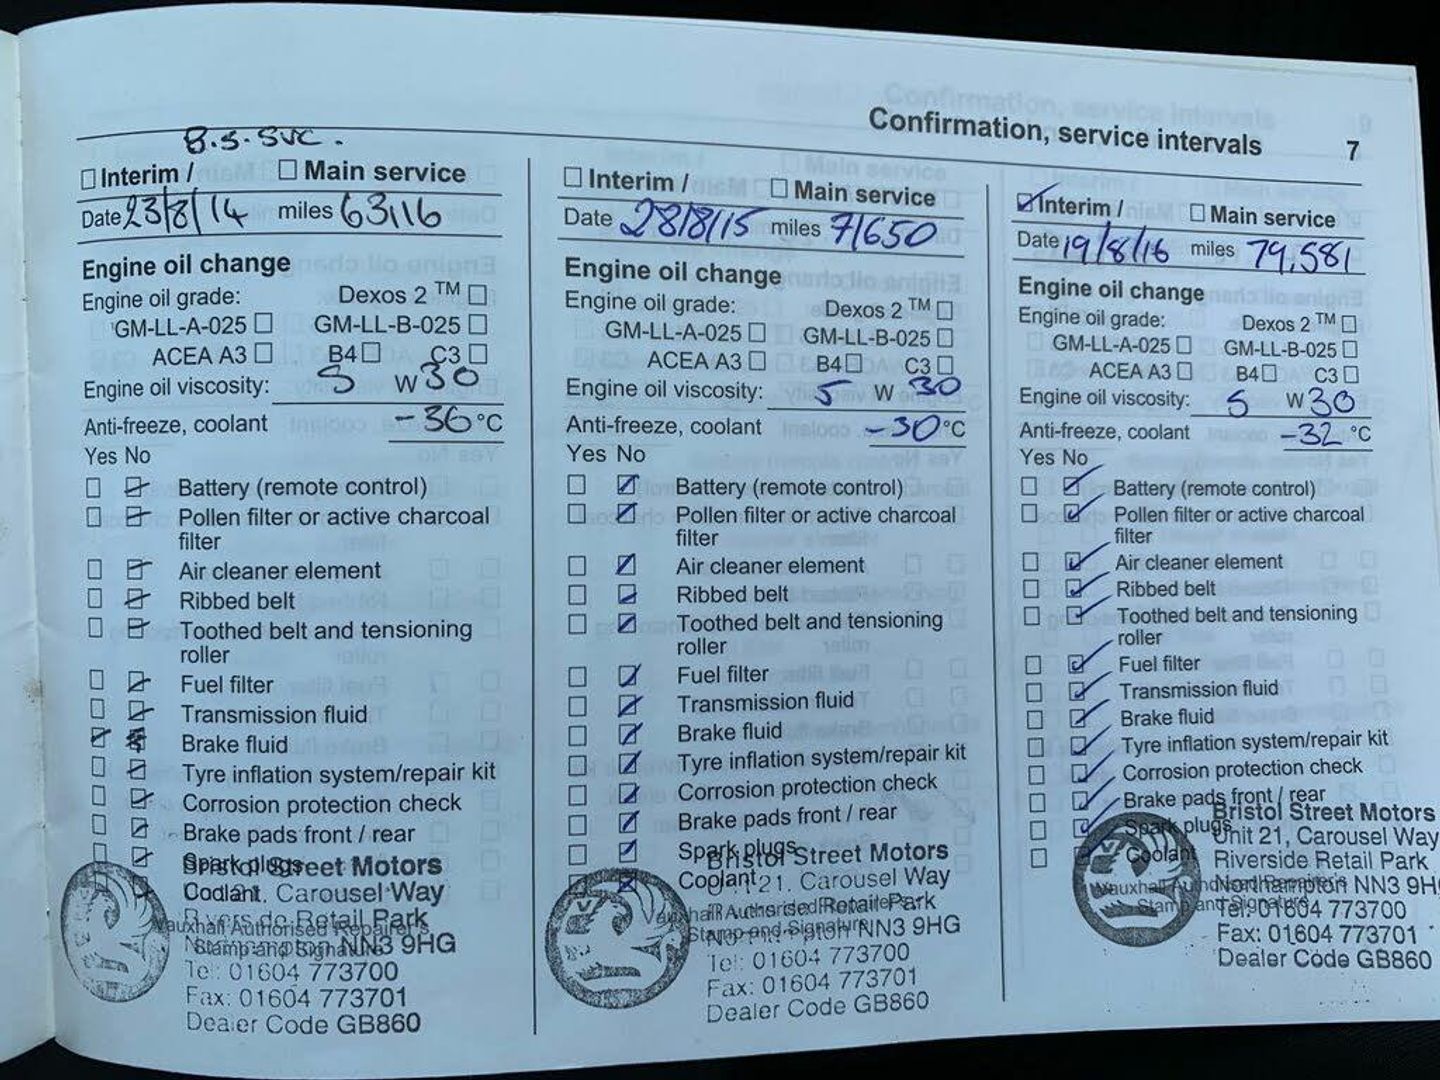 Confirmation, service intervals 7
B.S. SVC.
Interim / Main service
Date 23/8/14 miles 63116
Engine oil change
Engine oil grade: Dexos 2 TM
GM-LL-A-025 GM-LL-B-025
ACEA A3 B4 C3
Engine oil viscosity: 5 W 30
Anti-freeze, coolant -36 °C
Yes No
Battery (remote control)
Pollen filter or active charcoal
filter
Air cleaner element
Ribbed belt
Toothed belt and tensioning
roller
Fuel filter
Transmission fluid
Brake fluid
Tyre inflation system/repair kit
Corrosion protection check
Brake pads front / rear
Spark plugs
Bristol Street Motors
Coolant
Carousel Way
Retail Park
Vauxhall Authorised Repairer's
Stamp and Signature
NN3 9HG
Tel: 01604 773700
Fax: 01604 773701
Dealer Code GB860
Interim / Main service
Date 28/8/15 miles 71650
Engine oil change
Engine oil grade: Dexos 2 TM
GM-LL-A-025 GM-LL-B-025
ACEA A3 B4 C3
Engine oil viscosity: 5 W 30
Anti-freeze, coolant -30 °C
Yes No
Battery (remote control)
Pollen filter or active charcoal
filter
Air cleaner element
Ribbed belt
Toothed belt and tensioning
roller
Fuel filter
Transmission fluid
Brake fluid
Tyre inflation system/repair kit
Corrosion protection check
Brake pads front / rear
Spark plugs
Bristol Street Motors
Coolant
21. Carousel Way
Retail Park
Vauxhall Authorised Repairer's
Stamp and Signature
NN3 9HG
Tel: 01604 773700
Fax: 01604 773701
Dealer Code GB860
Interim / Main service
Date 19/8/16 miles 79,581
Engine oil change
Engine oil grade: Dexos 2 TM
GM-LL-A-025 GM-LL-B-025
ACEA A3 B4 C3
Engine oil viscosity: 5 W 30
Anti-freeze, coolant -32 °C
Yes No
Battery (remote control)
Pollen filter or active charcoal
filter
Air cleaner element
Ribbed belt
Toothed belt and tensioning
roller
Fuel filter
Transmission fluid
Brake fluid
Tyre inflation system/repair kit
Corrosion protection check
Brake pads front / rear
Bristol Street Motors
Spark plugs
Unit 21, Carousel Way
Coolant
Riverside Retail Park
Vauxhall Authorised Repairer's
Northampton NN3 9H
Stamp and Signature
Tel: 01604 773700
Fax: 01604 773701
Dealer Code GB860